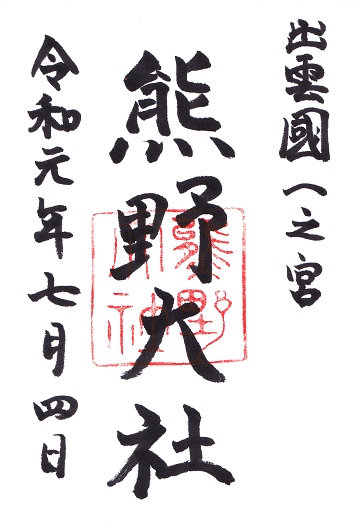 出雲國一之宮
熊野大社
令和元年七月四日
熊野
大神